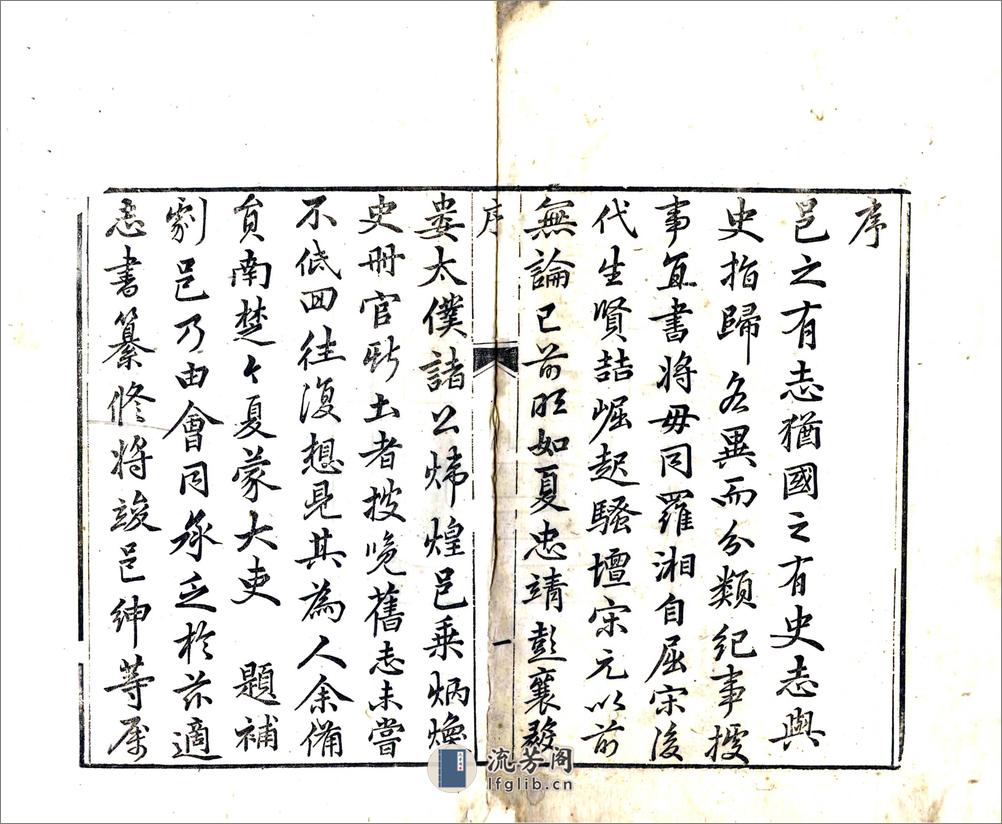 序
邑之有志猶國之有史志與
史指歸各異而分類紀事據
事直書將毋同羅湘自屈宋後
代生賢喆崛起騷壇宋元以前
無論已前明如夏忠靖彭襄毅
序
一
婁太僕諸公炳煌邑乘炳煥
史冊官斯土者披覽舊志未嘗
不低回往復想見其為人余備
員南楚今夏蒙大吏 題補
劇邑乃由會同承乏於茲適
志書纂修將竣邑紳等屬
流芳阁
lfglib.cn